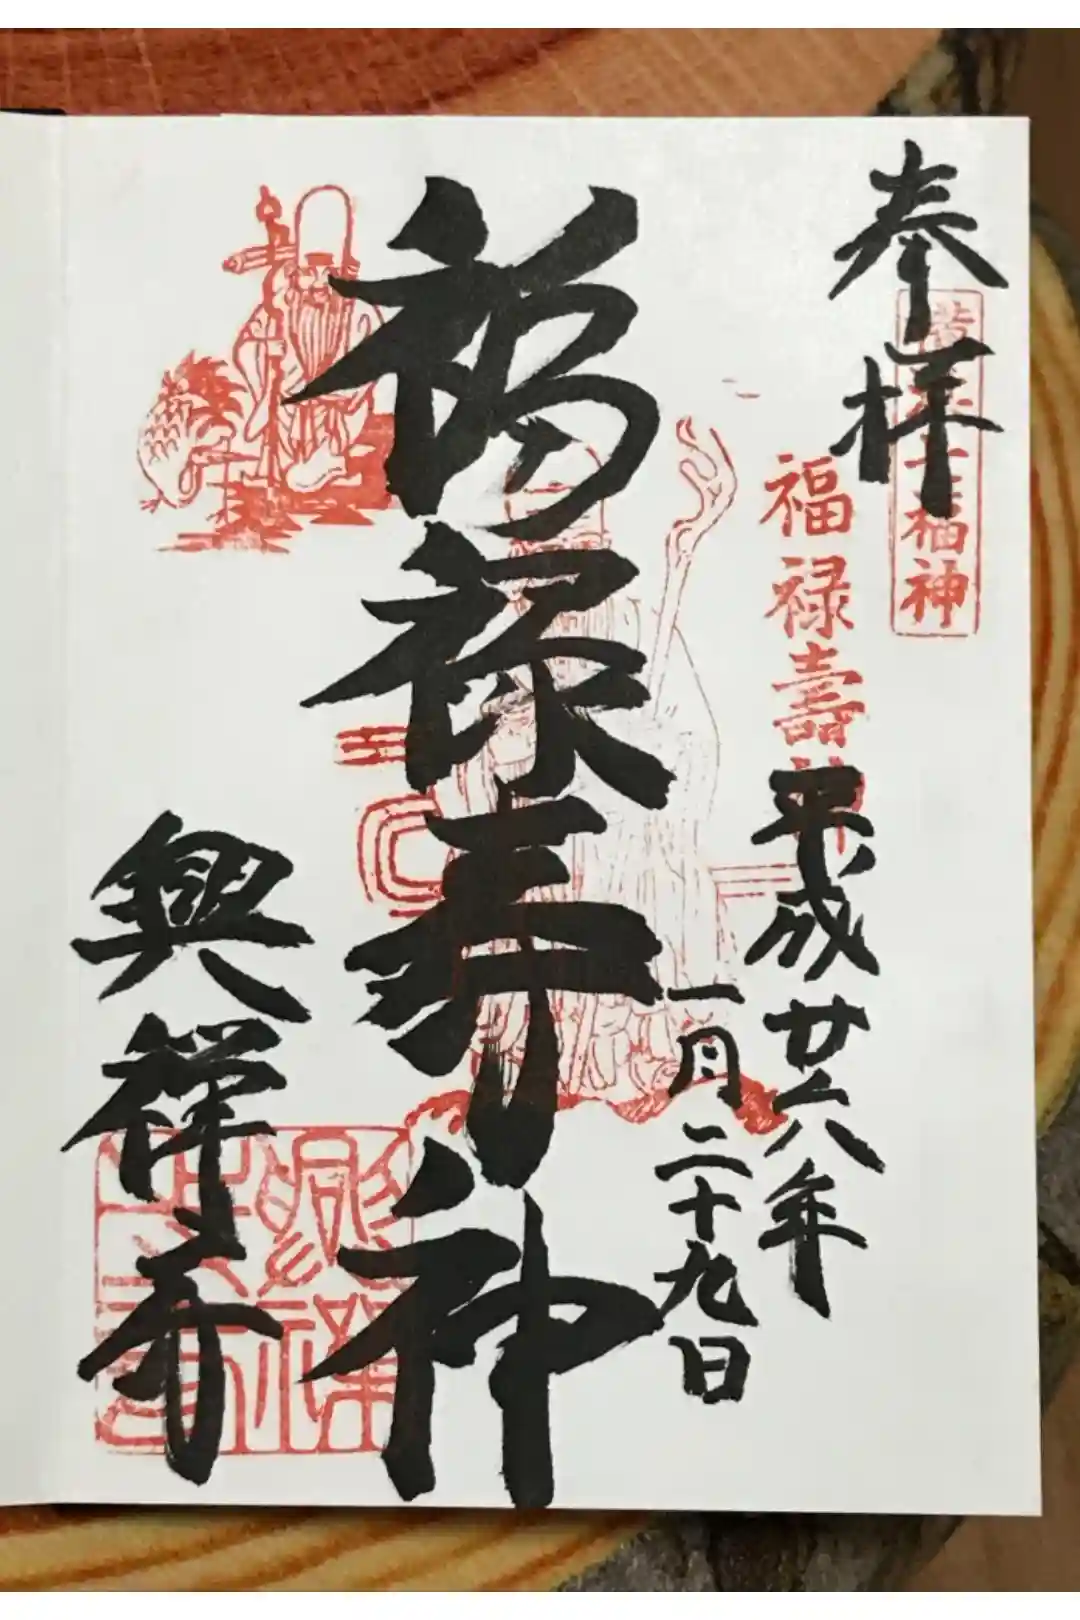 奉拝
福神
福禄壽神
平成廿六年
一月二十九日
福禄寿神
興祥寺